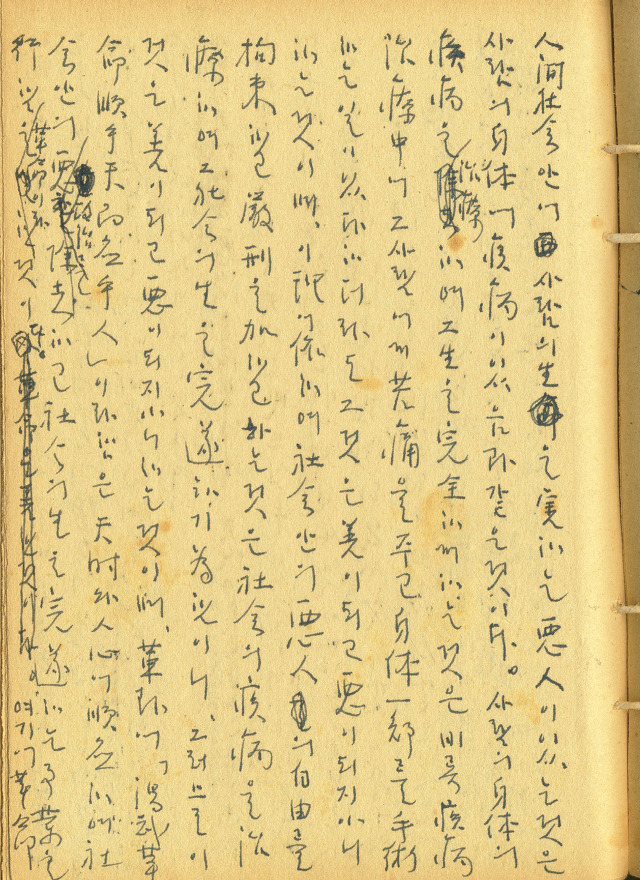 人間社会안에 사람의生을 害하는 悪人이 있는 것은
사람의 身体에 疾病이 있음과 같은 것이다。 사람의 身体의
疾病을 治療하여 그 生을 完全하게 하는 것은 비록 疾病
治療中에 그 사람에게 苦痛을 주고 身体一部를 手術
하는 일이 있다 하더라도 그것은 善이 되고 悪이 되지 아니
하는 것이며、 이 理에 依하여 社会안의 悪人의 自由를
拘束하고 厳刑을 加하고 하는 것은 社会의 疾病을 治
療하여 그 社会의 生을 完遂하기 為함이니、 그러므로 이
것은 善이 되고 悪이 되지 아니하는 것이며、 革卦에「湯武革
命順乎天而応乎人」이라 함은 天時와 人心에 順応하여 社
会안의 悪政治를 除去하고 社会의 生을 完遂하는 事業을
行함을 革命이라 하는 것이다。 여기에 革命